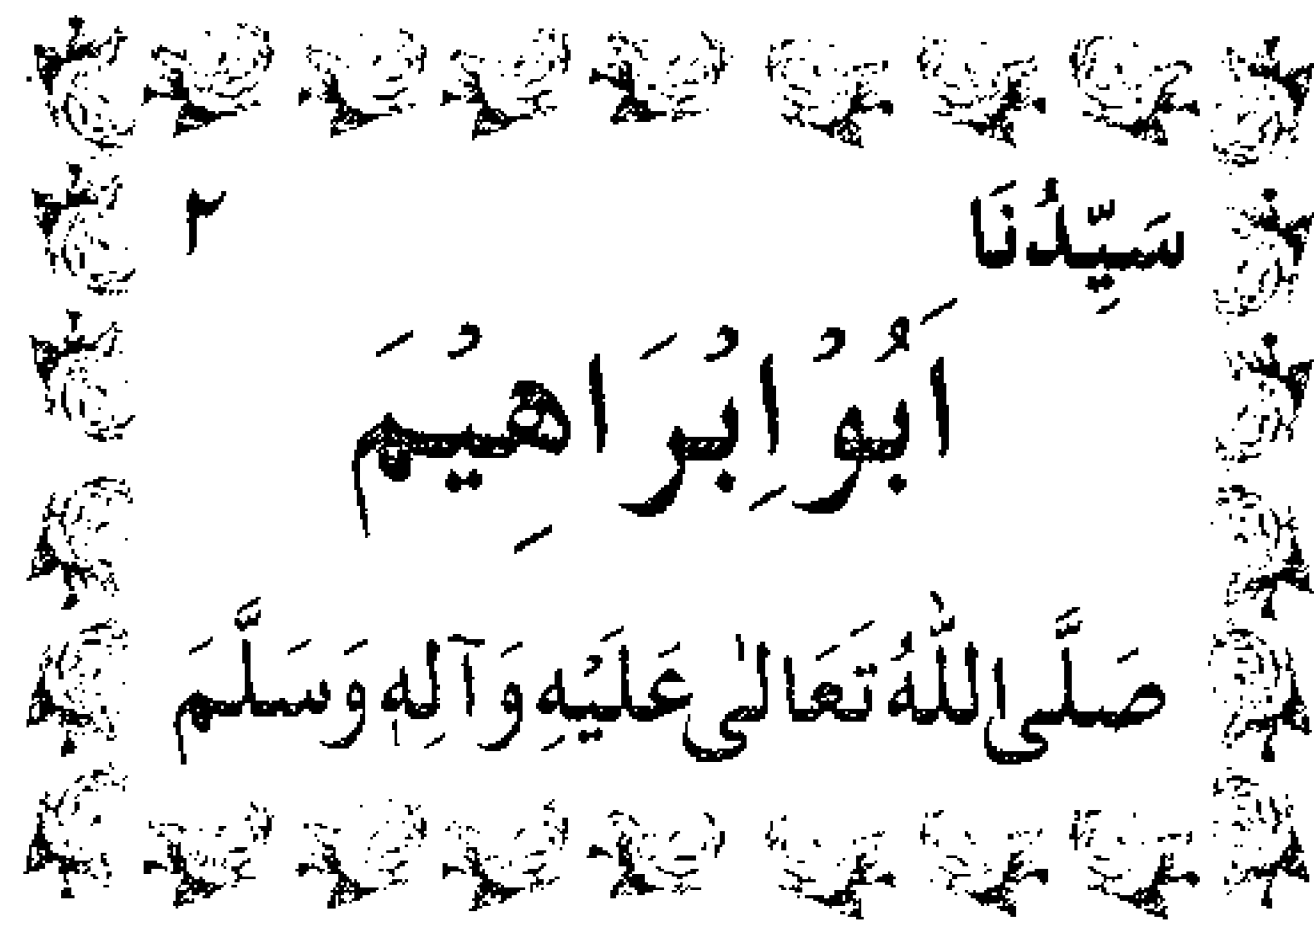 سَيِّدُنَا ٢
اَبُوْ اِبْرَاهِيْمَ
صَلَّى اللّٰهُ تَعَالٰى عَلَيْهِ وَآلِهٖ وَسَلَّمَ